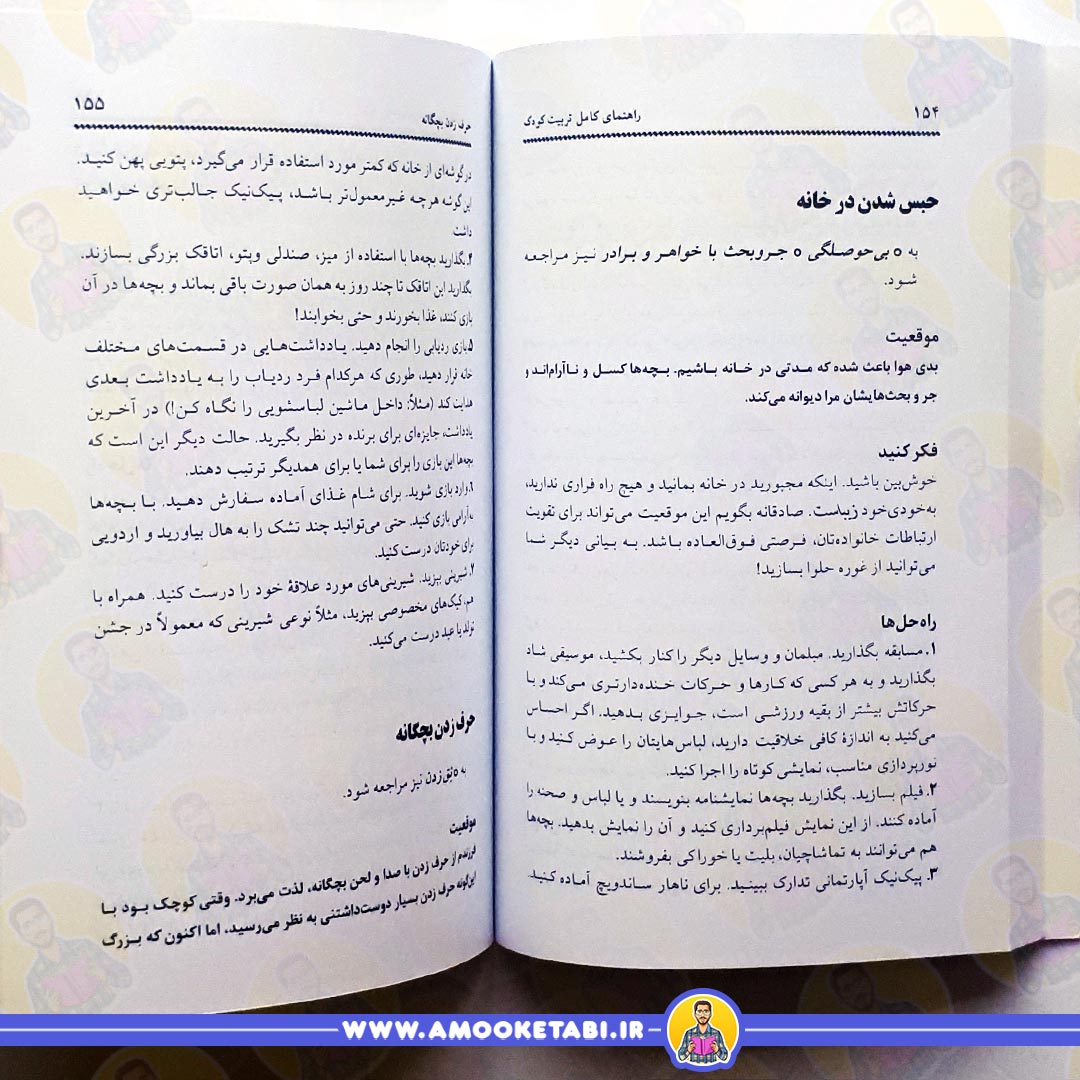 ۱۵۴
راهنمای کامل تربیت کودک
حبس شدن در خانه
به ٥ بی‌حوصلگی ٥ جروبحث با خواهر و برادر نیز مراجعه
شود.
موقعیت
بدی هوا باعث شده که مدتی در خانه باشیم. بچه‌ها کسل و ناآرام‌اند و
جر و بحث‌هایشان مرا دیوانه می‌کند.
فکر کنید
خوش‌بین باشید. اینکه مجبورید در خانه بمانید و هیچ راه فراری ندارید،
به‌خودی‌خود زیباست. صادقانه بگویم این موقعیت می‌تواند برای تقویت
ارتباطات خانواده‌تان، فرصتی فوق‌العاده باشد. به بیانی دیگر شما
می‌توانید از غوره حلوا بسازید!
راه‌حل‌ها
۱. مسابقه بگذارید. مبلمان و وسایل دیگر را کنار بکشید، موسیقی شاد
بگذارید و به هر کسی که کارها و حرکات خنده‌دارتری می‌کند و یا
حرکاتش بیشتر از بقیه ورزشی است، جوایزی بدهید. اگر احساس
می‌کنید به اندازهٔ کافی خلاقیت دارید، لباس‌هایتان را عوض کنید و با
نورپردازی مناسب، نمایشی کوتاه را اجرا کنید.
۲. فیلم بسازید. بگذارید بچه‌ها نمایشنامه بنویسند و یا لباس و صحنه را
آماده کنند. از این نمایش فیلم‌برداری کنید و آن را نمایش بدهید. بچه‌ها
هم می‌توانند به تماشاچیان، بلیت یا خوراکی بفروشند.
۳. پیک‌نیک آپارتمانی تدارک ببینید. برای ناهار ساندویچ آماده کنید.
حرف زدن بچگانه
۱۵۵
در گوشه‌ای از خانه که کمتر مورد استفاده قرار می‌گیرد، پتویی پهن کنید.
این گوشه هرچه غیرمعمول‌تر باشد، پیک‌نیک جالب‌تری خواهید
داشت
۴. بگذارید بچه‌ها با استفاده از میز، صندلی وپتو، اتاقک بزرگی بسازند.
بگذارید این اتاقک تا چند روز به همان صورت باقی بماند و بچه‌ها در آن
بازی کنند، غذا بخورند و حتی بخوابند!
۵. بازی ردیابی را انجام دهید. یادداشت‌هایی در قسمت‌های مختلف
خانه قرار دهید، طوری که هرکدام فرد ردیاب را به یادداشت بعدی
هدایت کند (مثلاً: داخل ماشین لباسشویی را نگاه کن!) در آخرین
یادداشت، جایزه‌ای برای برنده در نظر بگیرید. حالت دیگر این است که
بچه‌ها این بازی را برای شما یا برای همدیگر ترتیب دهند.
۶. وارد بازی شوید. برای شام غذای آماده سفارش دهید. با بچه‌ها
به آرامی بازی کنید. حتی می‌توانید چند تشک را به هال بیاورید و اردویی
برای خودتان درست کنید.
۷. شیرینی بپزید. شیرینی‌های مورد علاقهٔ خود را درست کنید. همراه با
هم، کیک‌های مخصوصی بپزید، مثلاً نوعی شیرینی که معمولاً در جشن
تولد یا عید درست می‌کنید.
حرف زدن بچگانه
به ٥ نق زدن نیز مراجعه شود.
موقعیت
فرزندم از حرف زدن با صدا و لحن بچگانه، لذت می‌برد. وقتی کوچک بود با
این‌گونه حرف زدن بسیار دوست‌داشتنی به نظر می‌رسید، اما اکنون که بزرگ
WWW.AMOOKETABI.IR